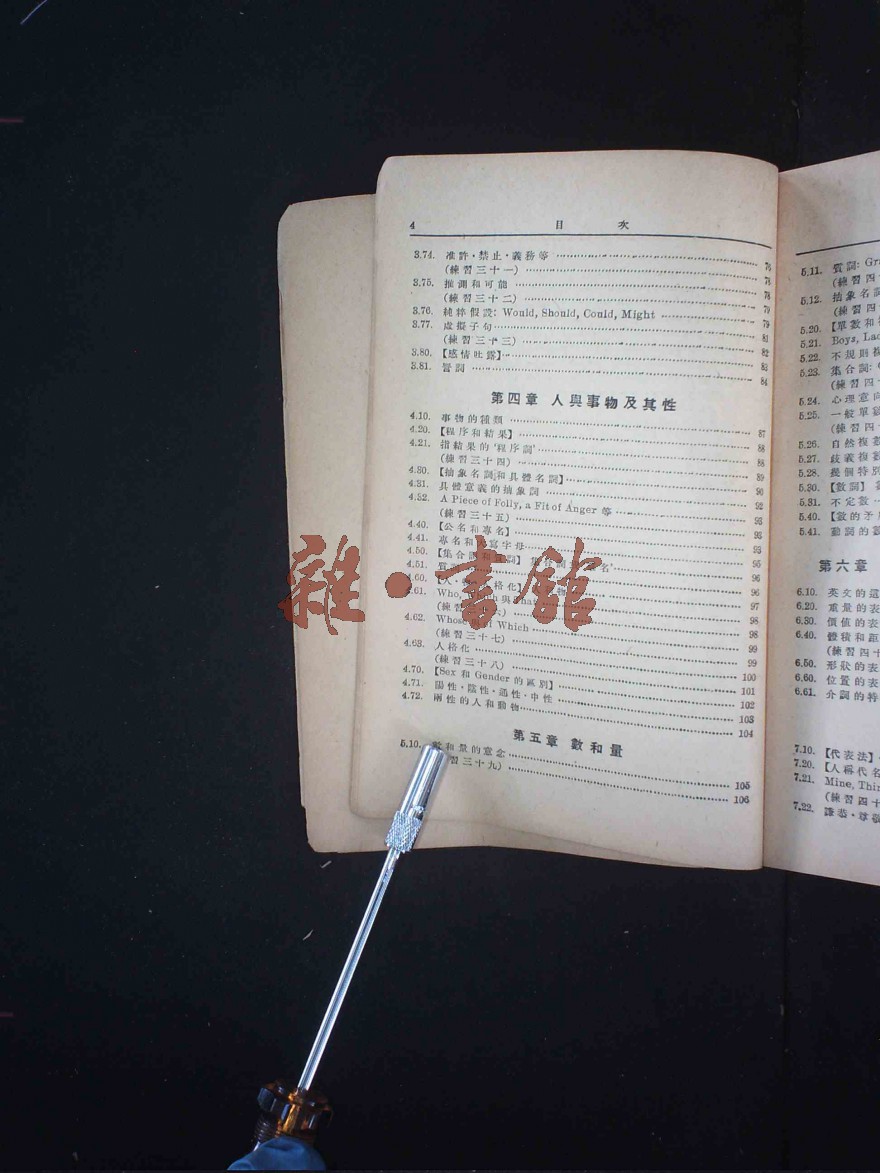 4 目 次
3.74. 准許·禁止·義務等 76
(練習三十一) 78
3.75. 推測和可能 78
(練習三十二) 79
3.76. 純粹假設: Would, Should, Could, Might 79
3.77. 虛擬子句 81
(練習三十三) 82
3.80. 【感情吐露】 83
3.81. 詈詞 84
第四章 人與事物及其性
4.10. 事物的種類 87
4.20. 【程序和結果】 88
4.21. 指結果的'程序詞' 88
(練習三十四) 89
4.30. 【抽象名詞和具體名詞】 90
4.31. 具體意義的抽象詞 92
4.32. A Piece of Folly, a Fit of Anger 等 93
(練習三十五) 93
4.40. 【公名和專名】 93
4.41. 專名和大寫字母 95
4.50. 【集合詞和質詞】 集合詞 96
4.51. 質詞 96
4.60. 【人 格化】 物 97
4.61. Who, 與 98
(練習三十六) 98
4.62. Whose Of Which 99
(練習三十七) 99
4.63. 人格化 100
(練習三十八) 101
4.70. 【Sex 和 Gender 的區別】 102
4.71. 陽性·陰性·通性·中性 103
4.72. 兩性的人和動物 104
第五章 數和量
5.10. 數和量的意念 105
習三十九) 106
雜·書館
5.11. 質詞: Gra
(練習四十
5.12. 抽象名詞
(練習四十
5.20. 【單數和
5.21. Boys, Lad
5.22. 不規則複
5.23. 集合詞:
(練習四十
5.24. 心理意向
5.25. 一般單數
(練習四十
5.26. 自然複數
5.27. 歧義複數
5.28. 幾個特別
5.30. 【數詞】
5.31. 不定數
5.40. 【數的矛盾
5.41. 動詞的數
第六章
6.10. 英文的這
6.20. 重量的表
6.30. 價值的表
6.40. 體積和距
(練習四十
6.50. 形狀的表
6.60. 位置的表
6.61. 介詞的特
7.10. 【代表法】
7.20. 【人稱代名
7.21. Mine, Thin
(練習四十
7.22. 謙恭·尊敬